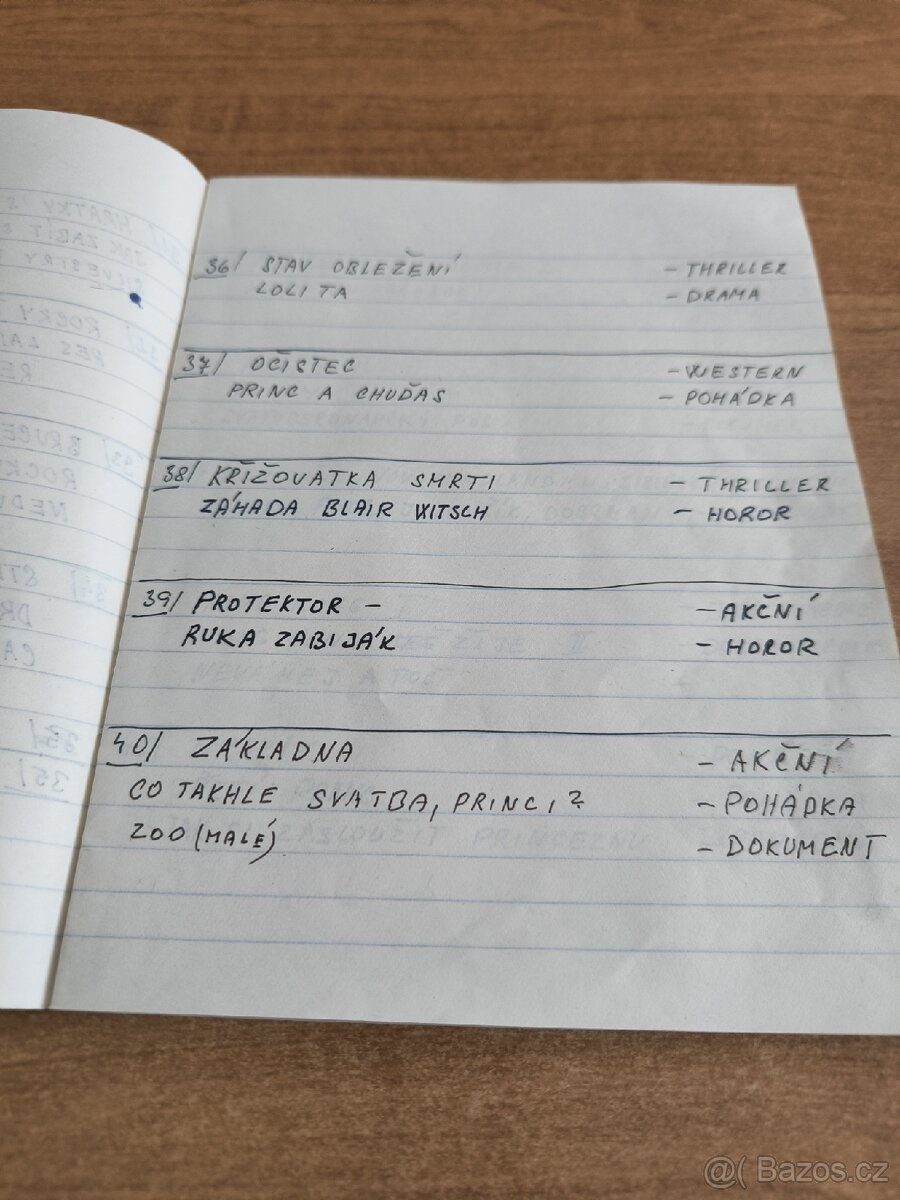 36/ STAV OBLEŽENÍ - THRILLER
LOLITA - DRAMA
37/ OČISTEC - WESTERN
PRINC A CHUĎAS - POHÁDKA
38/ KŘIŽOVATKA SMRTI - THRILLER
ZÁHADA BLAIR WITSCH - HOROR
39/ PROTEKTOR - - AKČNÍ
RUKA ZABIJÁK - HOROR
40/ ZÁKLADNA - AKČNÍ
CO TAKHLE SVATBA, PRINCI? - POHÁDKA
ZOO (MALÉ) - DOKUMENT
@( Bazos.cz